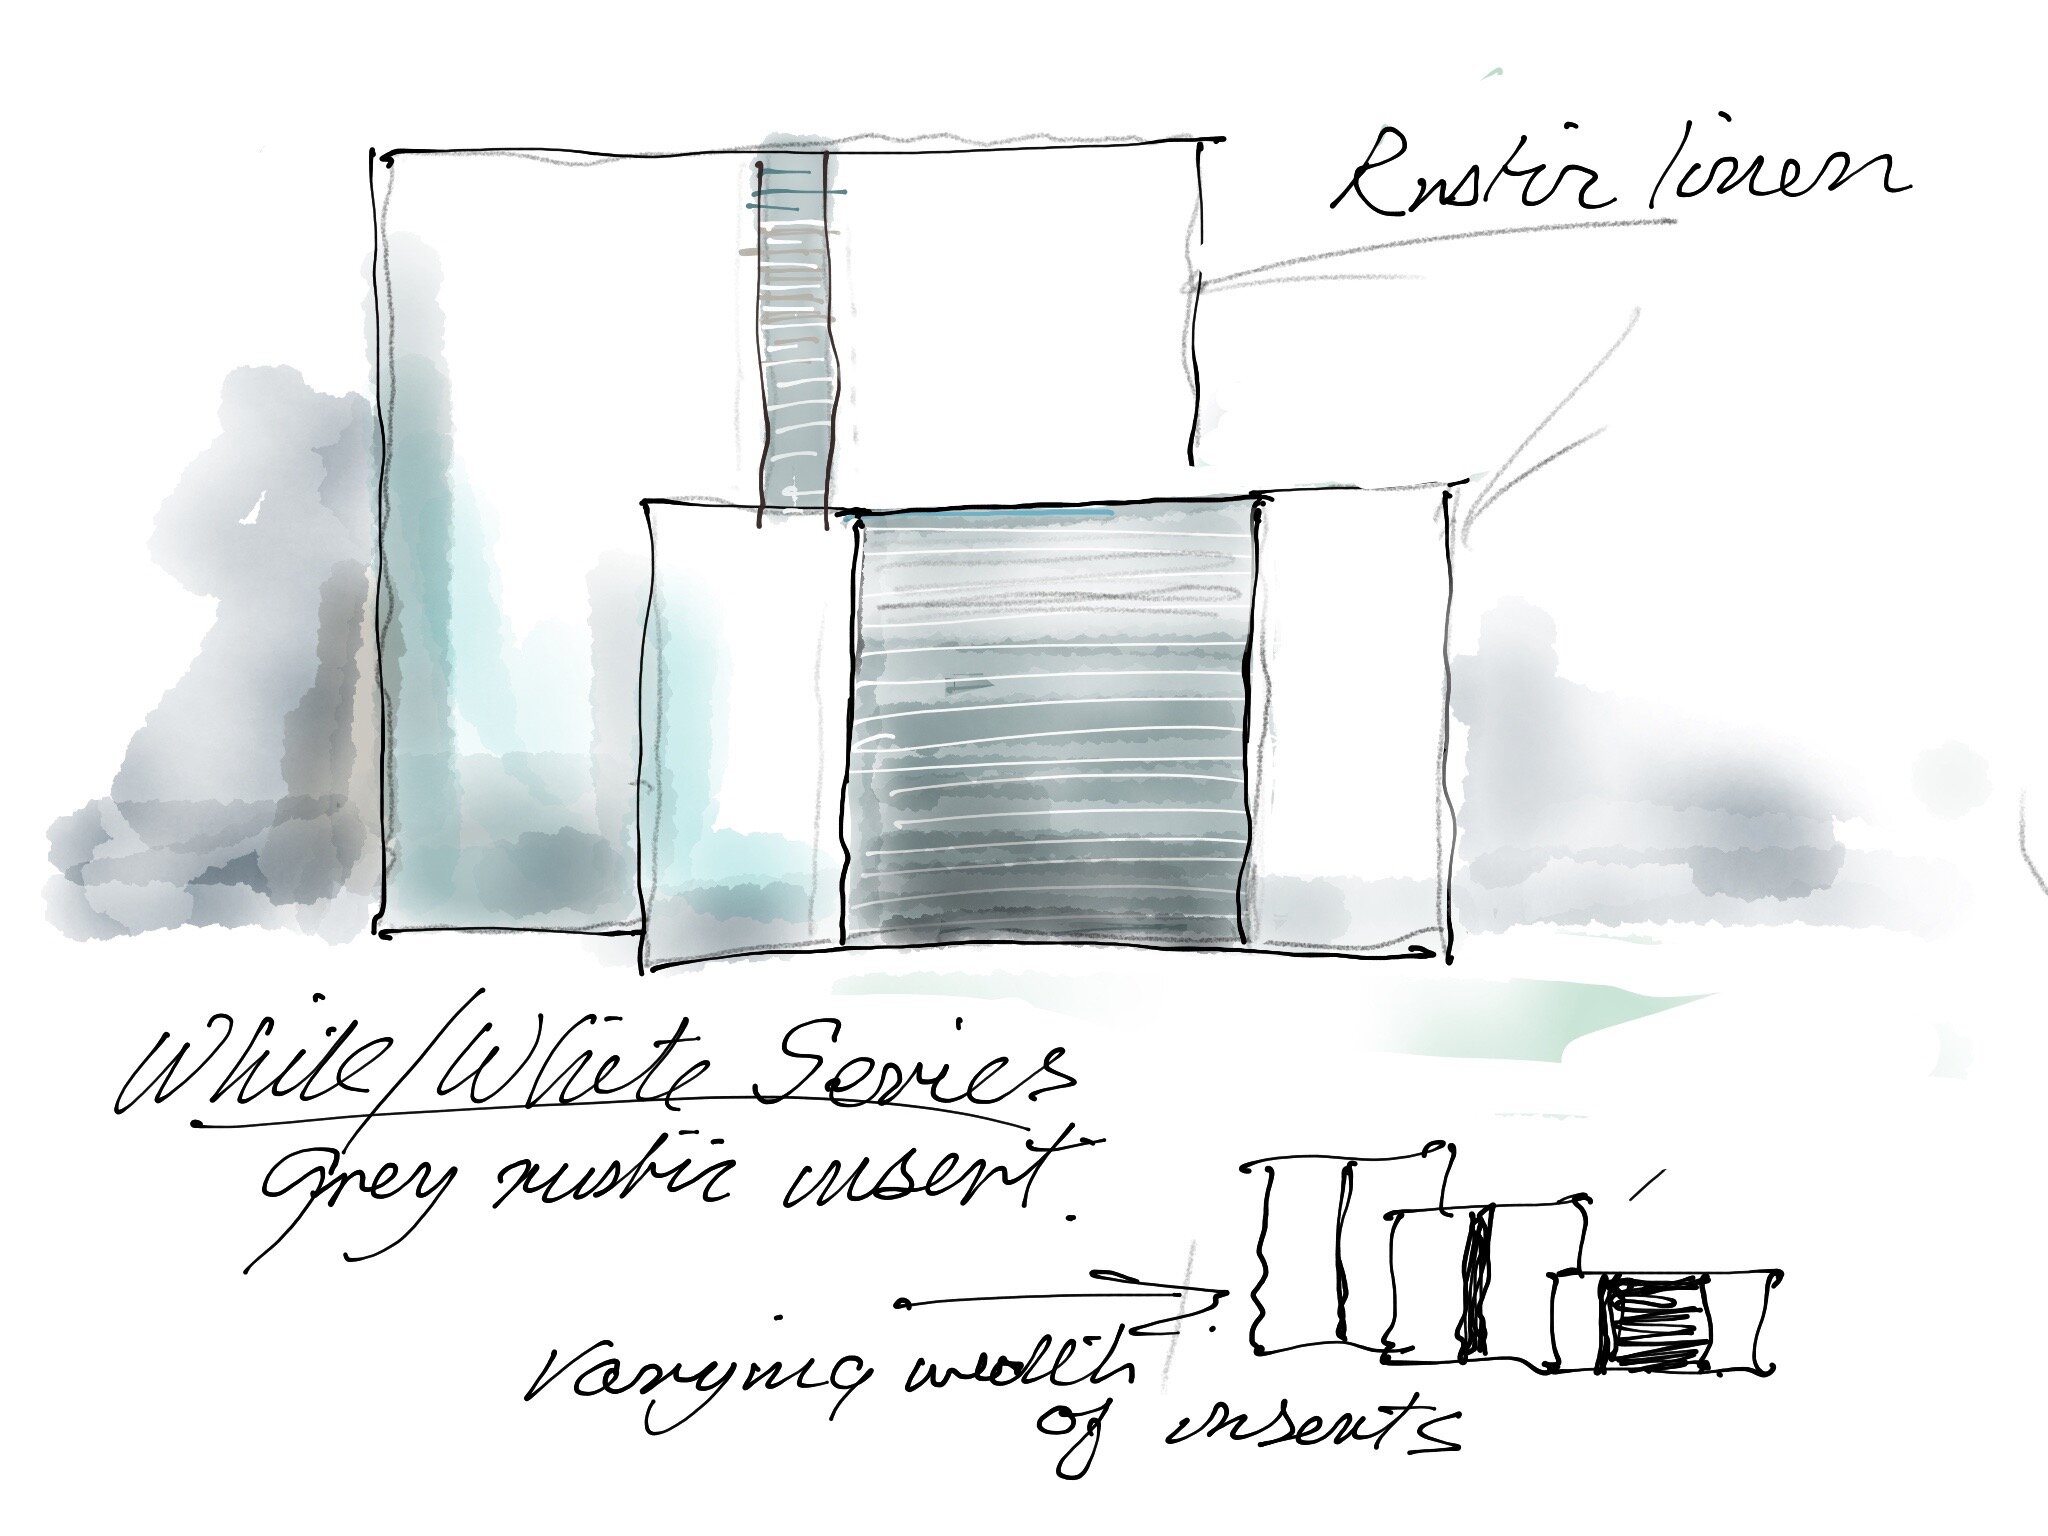 Rustic linen
White/White Series
Grey rustic insert.
varying width
of inserts